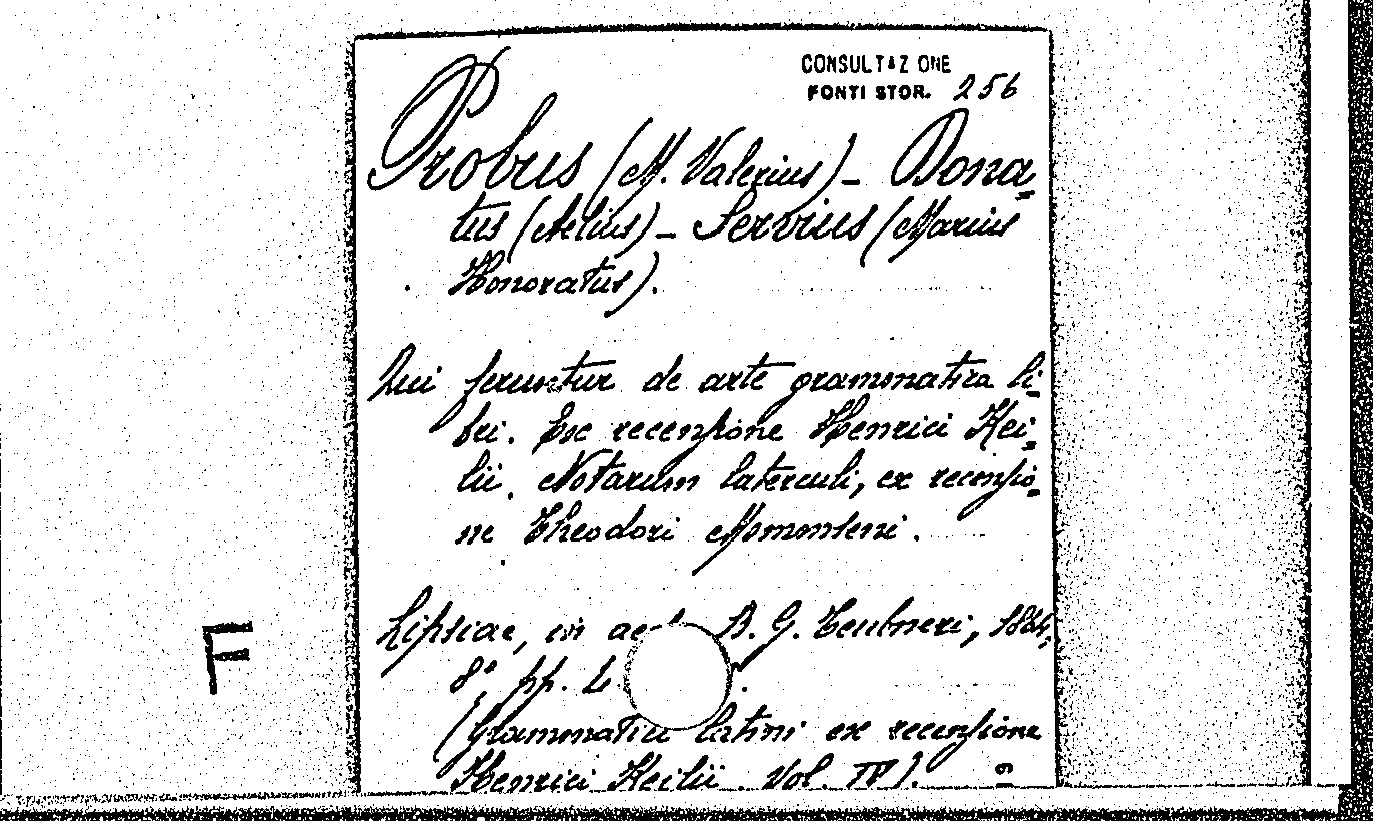 CONSULTAZIONE
FONTI STOR. 256
Probus (M. Valerius) - Dona-
tus (Aelius) - Servius (Marius
Honoratus).
Qui feruntur de arte grammatica li-
bri. Ex recensione Henrici Kei-
lii. Notarum laterculi, ex recensio-
ne Theodori Mommseni.
Lipsiae, in B. G. Teubneri, 1864,
8° pp.
(Grammatici latini ex recensione
Henrici Keilii. Vol. IV).
F